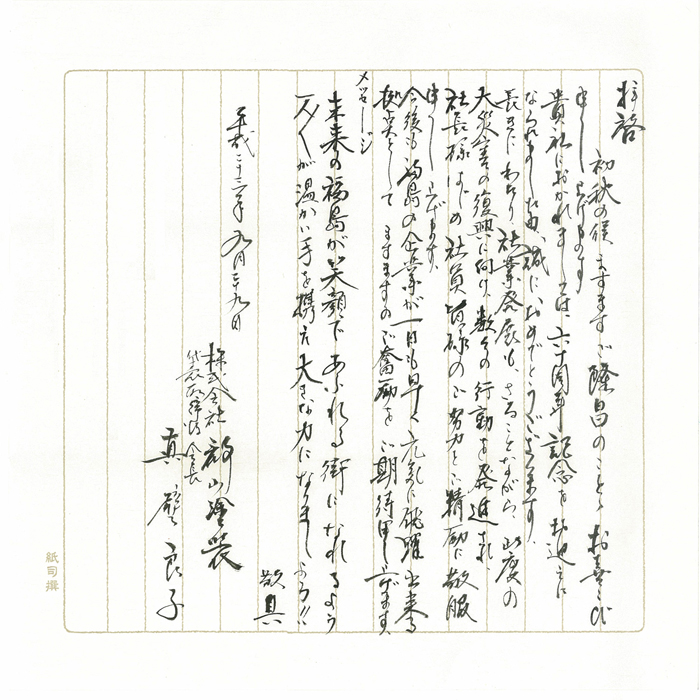 拝啓
初秋の候 ますますご隆昌のこと お喜び
申し上げます
貴社におかれましては、六十周年記念を お迎えに
なられました由、誠に、おめでとうございます。
長きにわたり 社業発展も、さることながら、此度の
大災害の復興に向け、数々の行動を発進され
社長様はじめ 社員皆様の ご努力とご精励に敬服
申し上げます。
今後も 福島の企業が一日も早く 元気に飛躍出来る
拠点として ますますのご奮励を ご期待申し上げます。
メッセージ
未来の福島が笑顔であふれる街になれるよう
一人一人が温かい手を携え 大きな力になりましょう!!
敬具
平成二十三年 九月二十九日
株式会社 塗装
代表取締役会長
真壁良子
紙司撰